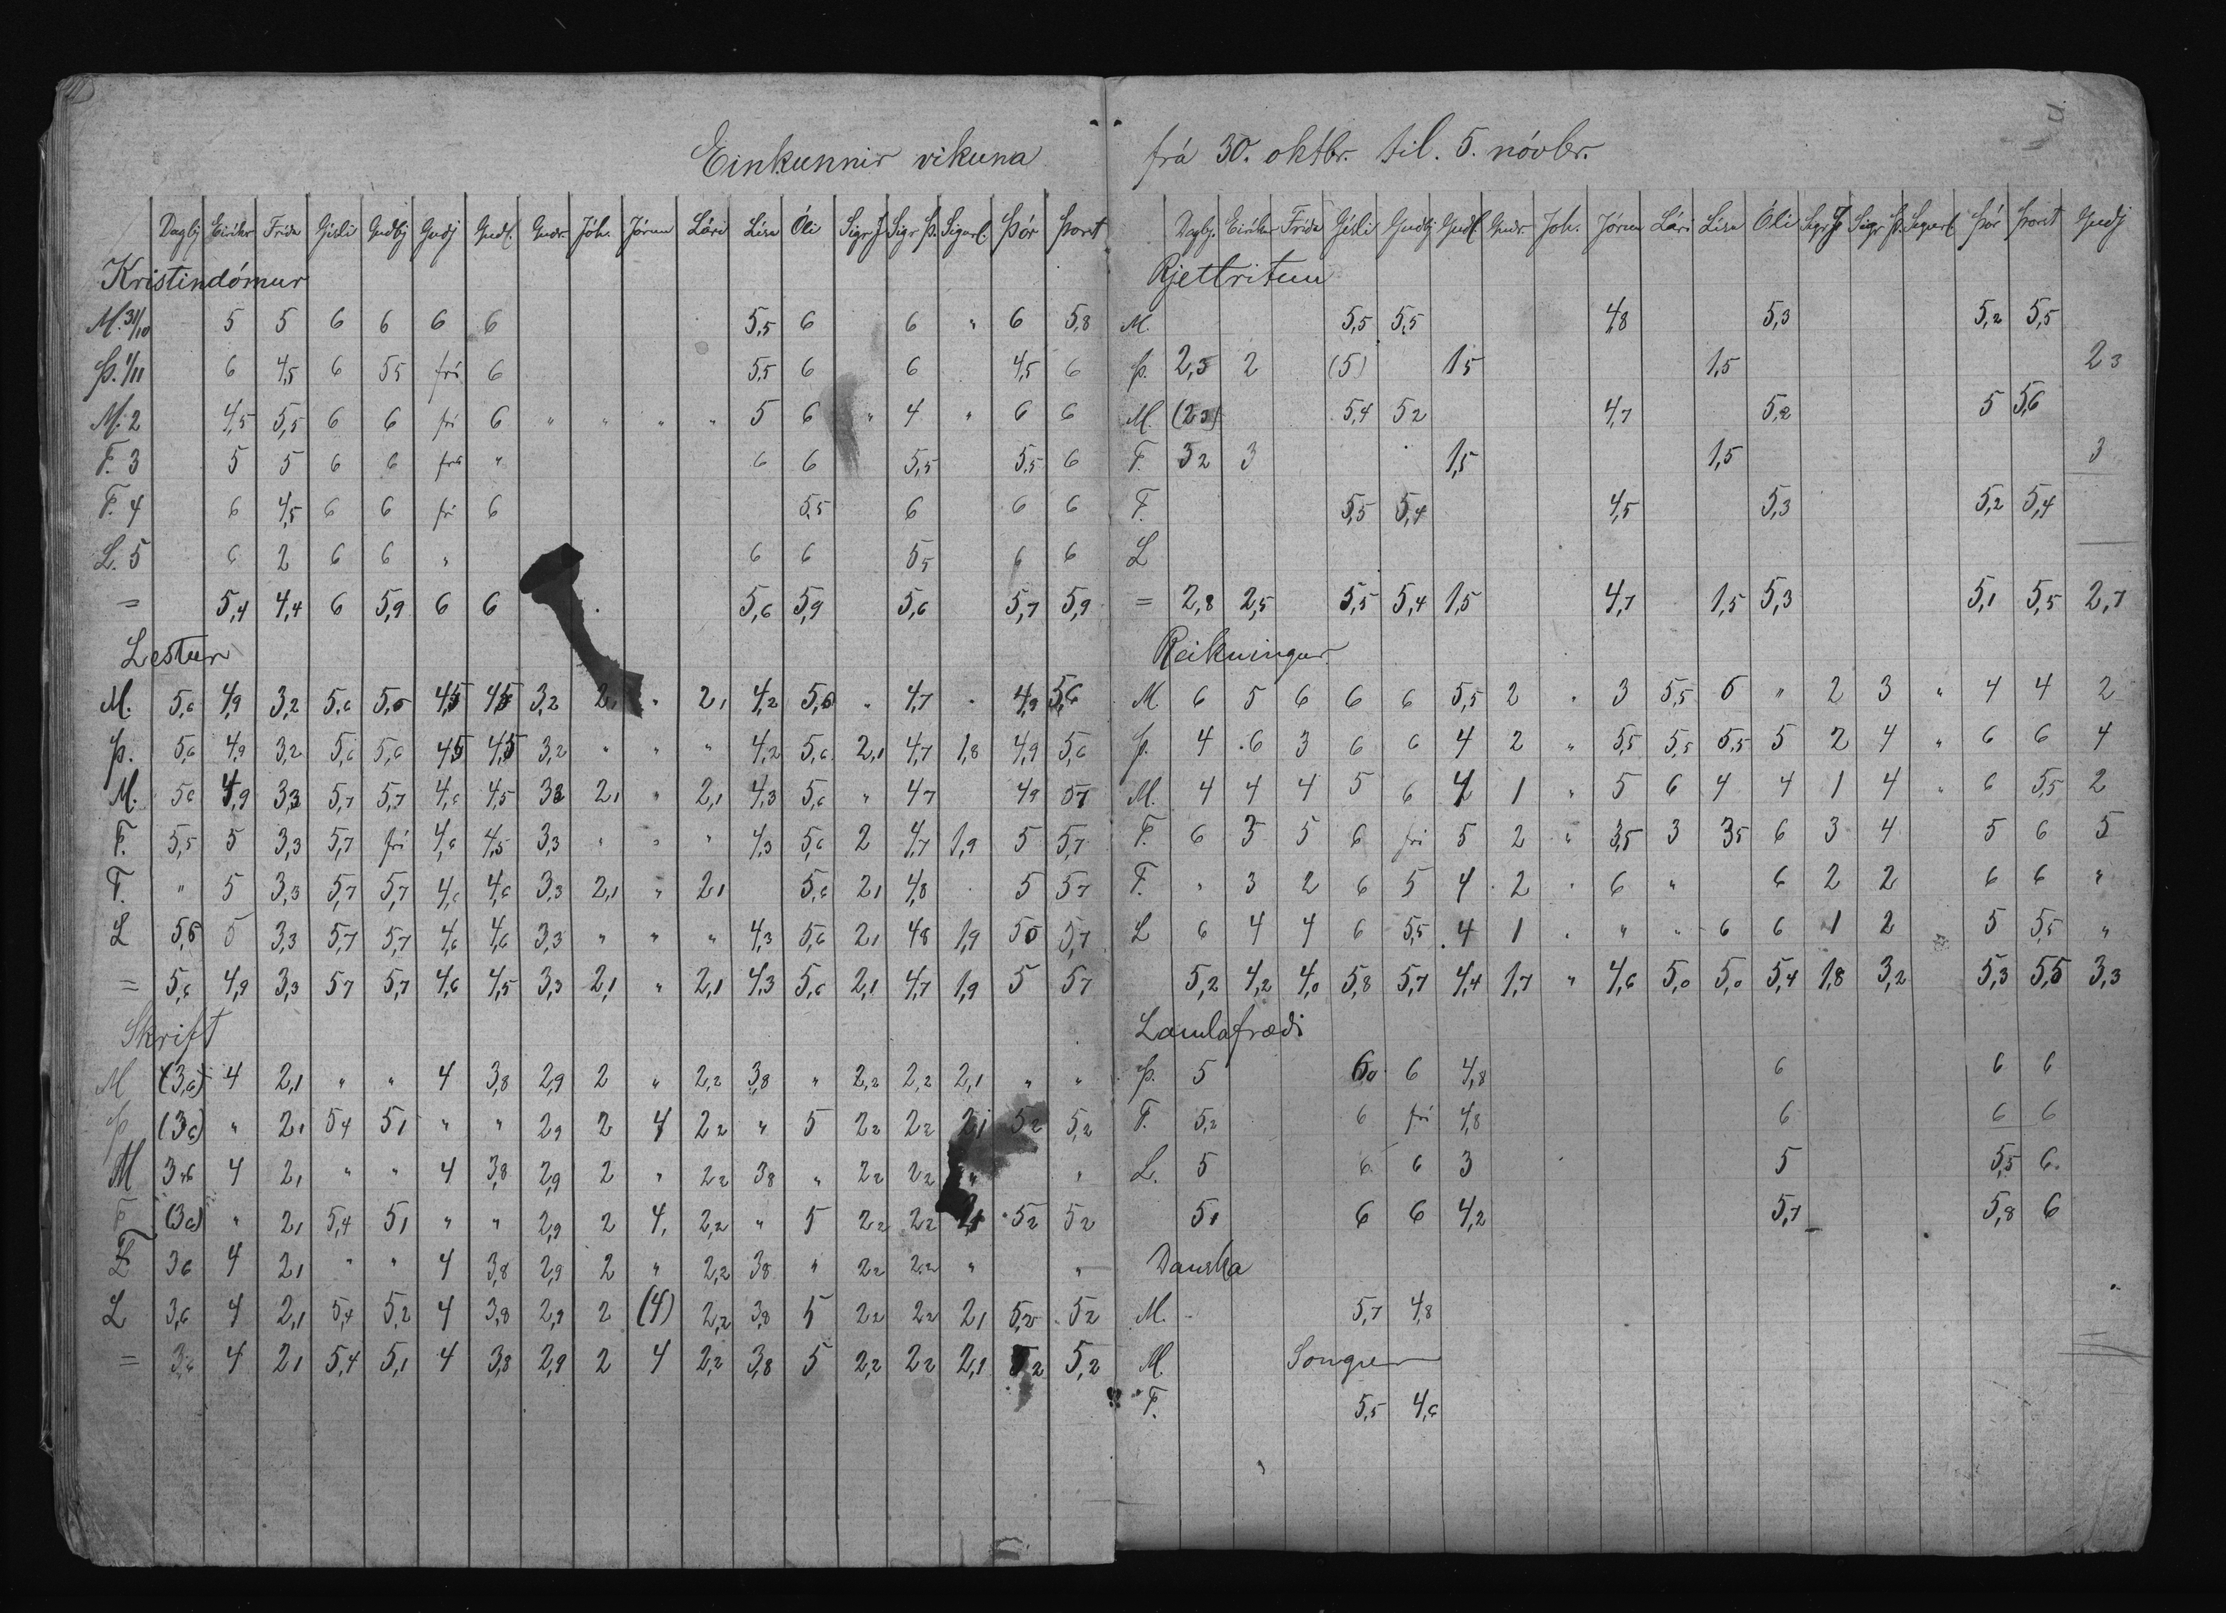 Einkunnir vikuna
Dagbj Eiríkur Fríða Gísli Guðbj Guðj Guðl. Guðr. Jóh. Jórun Lári Lísa Óli Sigr J Sigr Þ. Sigurl. Þór Þorst
Kristindómur
M. 31/10 5 5 6 6 6 6 5,5 6 6 " 6 5,8
Þ. 1/11 6 4,5 6 5 5 frí 6 5,5 6 6 4,5 6
M. 2 4,5 5,5 6 6 frí 6 " " " " 5 6 " 4 " 6 6
F. 3 5 5 6 6 frí " 6 6 5,5 5,5 6
F. 4 6 4,5 6 6 frí 6 5,5 6 6 6
L. 5 6 2 6 6 " 6 6 5 5 6 6
= 5,4 4,4 6 5,9 6 6 5,6 5,9 5,6 5,7 5,9
Lestur
M. 5,6 4,9 3,2 5,6 5,6 4,5 4,5 3,2 2, " 2,1 4,2 5,6 " 4,7 " 4,9 5,6
Þ. 5,6 4,9 3,2 5,6 5,6 4,5 4,5 3,2 " " " 4,2 5,6 2,1 4,7 1,8 4,9 5,6
M. 5 6 4,9 3,3 5,7 5,7 4,6 4,5 3 3 2,1 " 2,1 4,3 5,6 " 4 7 4 9 5 7
F. 5,5 5 3,3 5,7 frí 4,6 4,5 3,3 " " " 4,3 5,6 2 4,7 1,9 5 5,7
F. " 5 3,3 5,7 5,7 4,6 4,6 3,3 2,1 " 2 1 5,6 2 1 4,8 5 5 7
L 5,6 5 3,3 5,7 5,7 4,6 4,6 3,3 " " " 4,3 5,6 2 1 4 8 1,9 5 0 5,7
= 5,6 4,9 3,3 5 7 5,7 4,6 4,5 3,3 2,1 " 2,1 4,3 5,6 2,1 4,7 1,9 5 5 7
Skrift
M (3,6) 4 2,1 " " 4 3,8 2,9 2 " 2,2 3,8 " 2,2 2,2 2,1 " "
Þ (3 6) " 2 1 5 4 5 1 " " 2 9 2 4 2 2 " 5 2 2 2 2 2 1 5 2 5,2
M 3 6 4 2 1 " " 4 3,8 2,9 2 " 2 2 3 8 " 2 2 2 2 " "
F (3 6) " 2 1 5,4 5 1 " " 2,9 2 4, 2,2 " 5 2 2 2 2 2 1 5 2 5 2
F 3 6 4 2 1 " " 4 3,8 2,9 2 " 2,2 3 8 " 2 2 2 2 " "
L 3,6 4 2,1 5,4 5,2 4 3,8 2,9 2 (4) 2,2 3,8 5 2 2 2 2 2 1 5,2 5 2
= 3,6 4 2 1 5,4 5,1 4 3,8 2,9 2 4 2,2 3,8 5 2,2 2 2 2,1 5 2 5,2
frá 30. oktbr. til. 5. nóvbr.
Dagbj. Eiríkur Fríða Gísli Guðbj Guðl. Guðr. Jóh. Jórun Lári Lísa Óli Sigr J Sigr Þ. Sigurl Þór Þorst Guðj
Rjettritun
M. 5,5 5,5 4,8 5,3 5,2 5,5
Þ. 2,3 2 (5) 1 5 1,5 2 3
M. (2 3) 5,4 5 2 4,7 5,2 5 5,6
F. 3 2 3 1,5 1,5 3
F. 5,5 5,4 4,5 5,3 5,2 5,4
L
= 2,8 2,5 5,5 5,4 1,5 4,7 1,5 5,3 5,1 5,5 2,7
Reikningur
M 6 5 6 6 6 5,5 2 " 3 5,5 6 " 2 3 " 4 4 2
Þ. 4 6 3 6 6 4 2 " 5,5 5,5 5,5 5 2 4 " 6 6 4
M. 4 4 4 5 6 4 1 " 5 6 4 4 1 4 " 6 5,5 2
F. 6 3 5 6 frí 5 2 " 3,5 3 3 5 6 3 4 5 6 5
F. " 3 2 6 5 4 2 " 6 " 6 2 2 6 6 "
L 6 4 4 6 5,5 4 1 " " " 6 6 1 2 5 5,5 "
5,2 4,2 4,0 5,8 5,7 4,4 1,7 " 4,6 5,0 5,0 5,4 1,8 3,2 5,3 5,5 3,3
Landafræði
Þ. 5 6,0 6 4,8 6 6 6
F. 5,2 6 frí 4,8 6 6 6
L. 5 6 6 3 5 5,5 6
5 1 6 6 4,2 5,7 5,8 6
Danska
M. 5,7 4,8
M. Söngur
F. 5,5 4,6